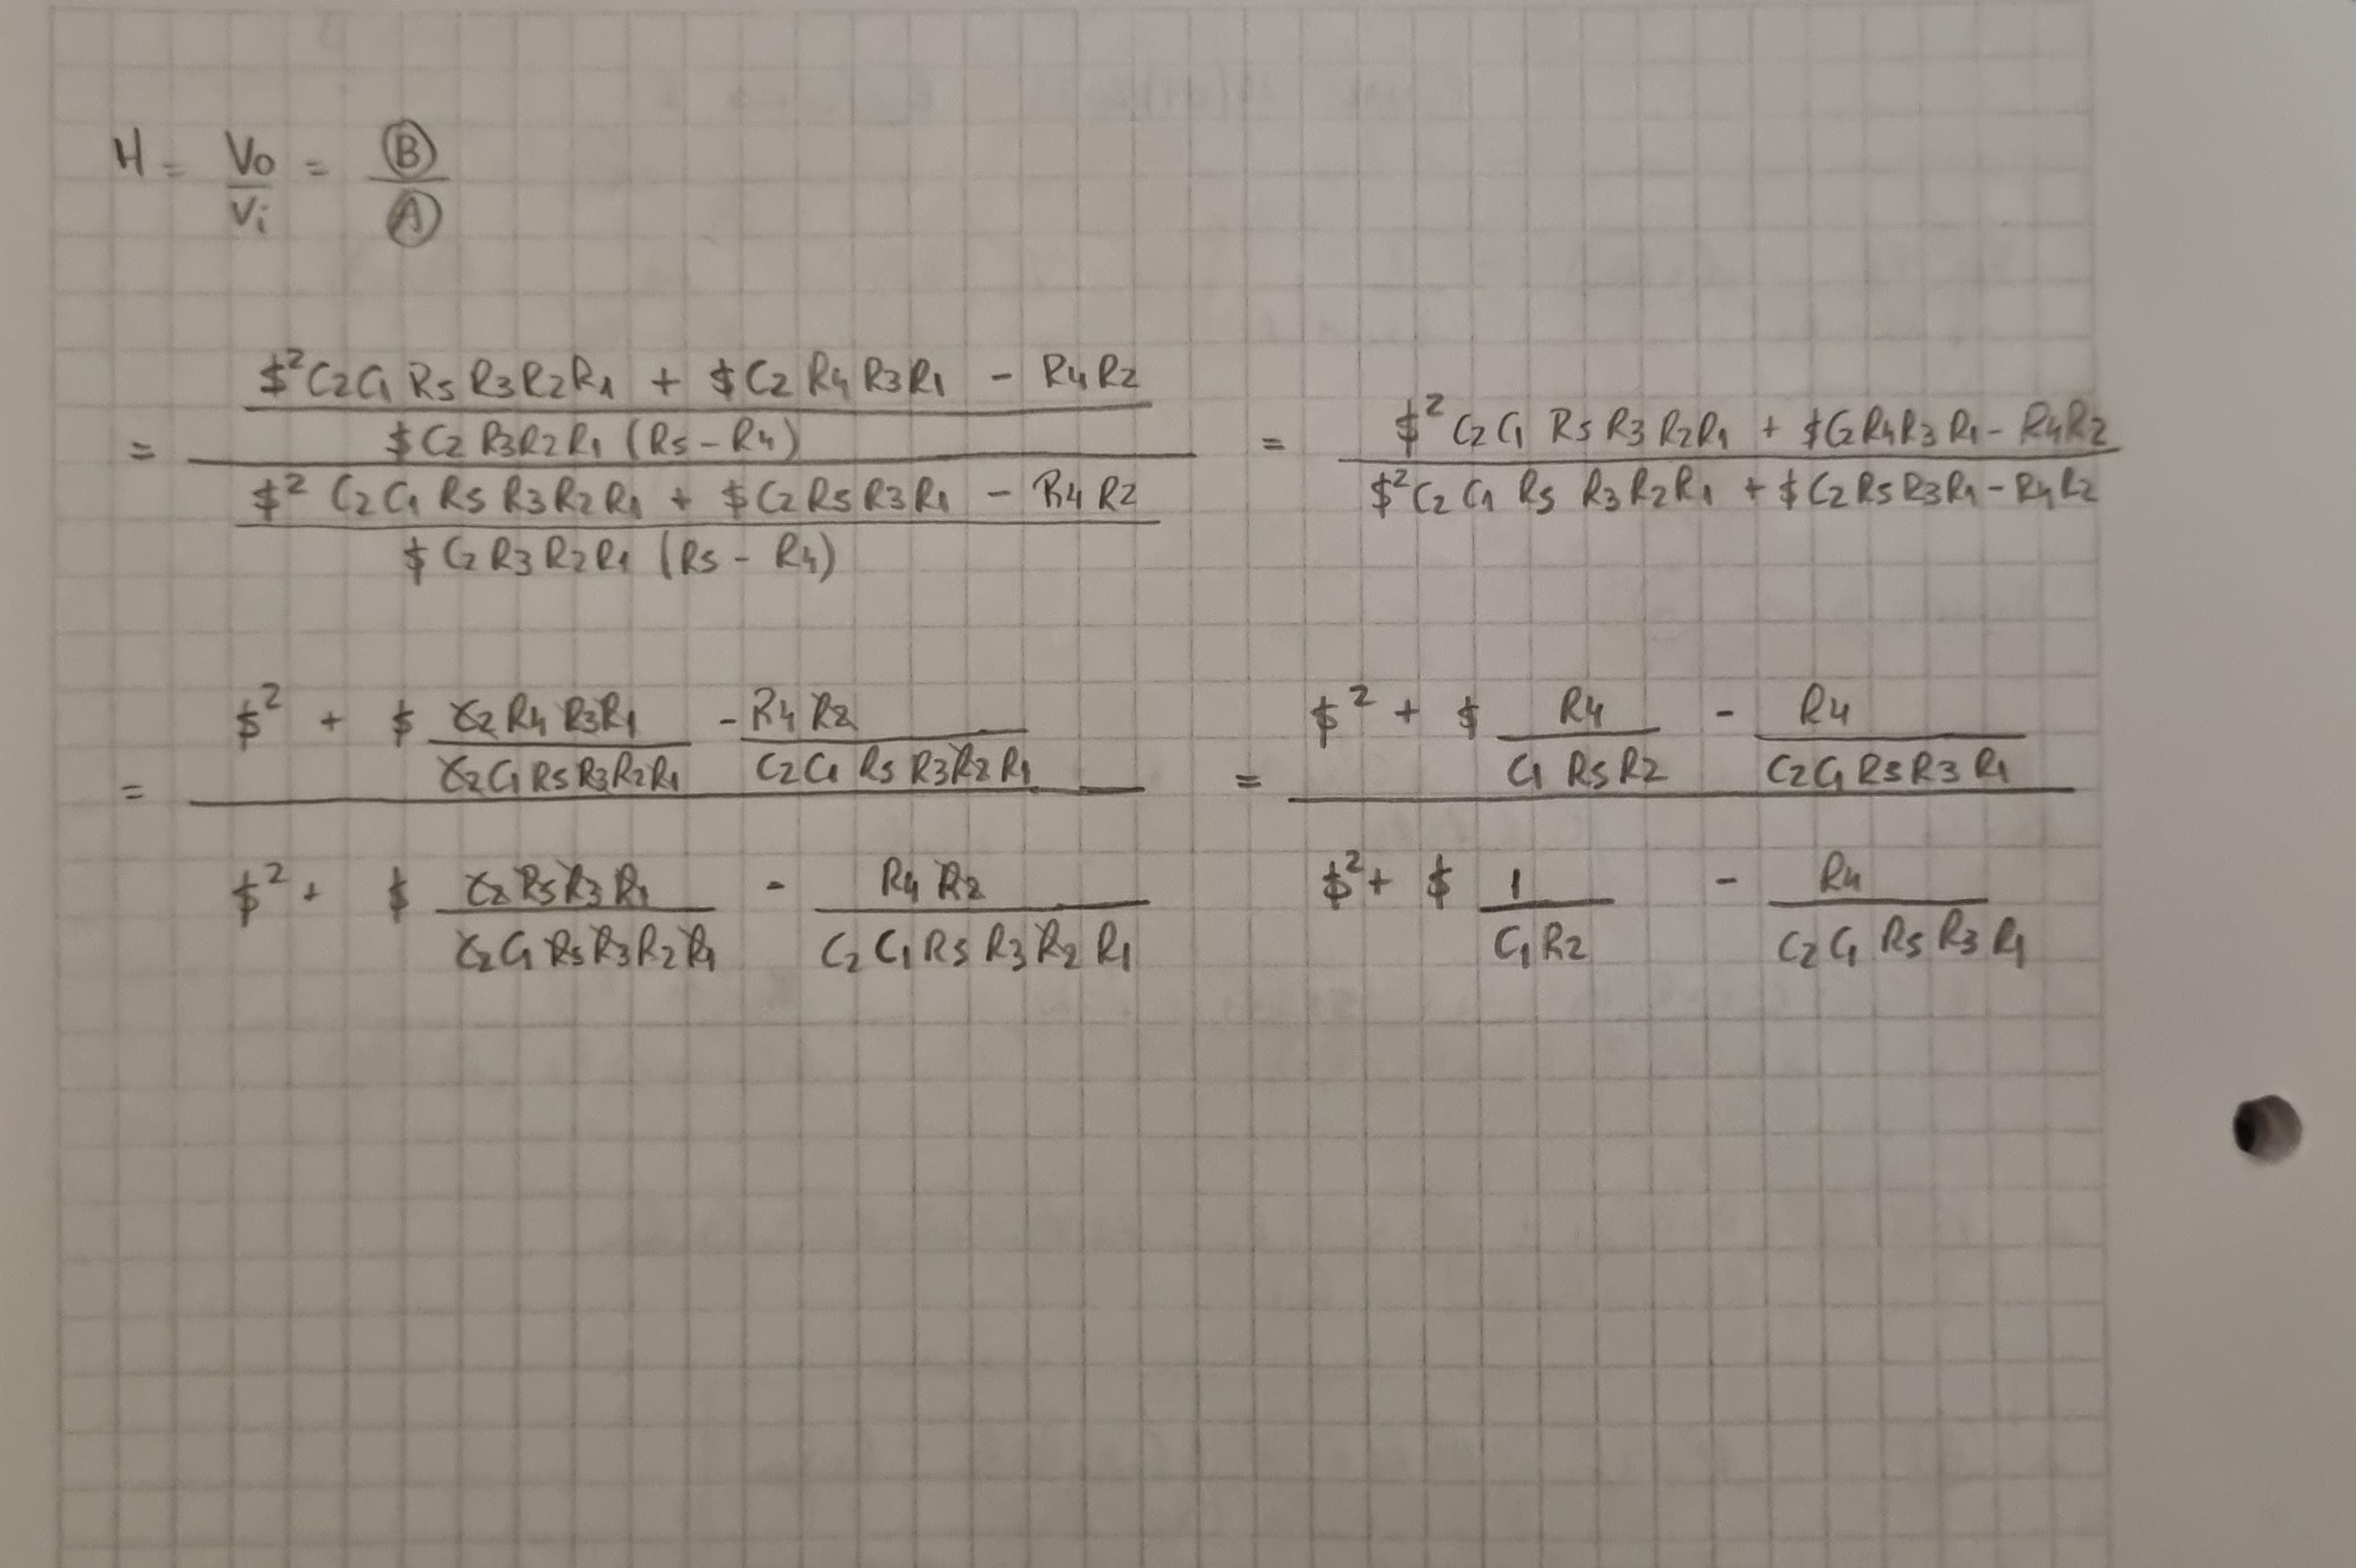 H = Vo/Vi = Ⓑ/Ⓐ
= (($²C2C1 R5 R3R2R1 + $C2 R4 R3R1 - R4R2)/($C2 R3R2R1 (R5-R4)))/(($² C2C1 R5 R3R2R1 + $C2R5R3R1 - R4R2)/($ C2R3R2R1 (R5 - R4))) = ($² C2C1 R5 R3 R2R1 + $C2R4R3R1 - R4R2)/($²C2C1 R5 R3R2R1 + $C2R5R3R1 - R4R2)
= ($² + $ (C2R4R3R1)/(C2C1R5R3R2R1) - (R4R2)/(C2C1 R5 R3R2R1))/($² + $ (C2R5R3R1)/(C2C1R5R3R2R1) - (R4R2)/(C2C1R5R3R2R1)) = ($² + $ R4/(C1R5R2) - R4/(C2C1R5R3R1))/($² + $ 1/(C1R2) - R4/(C2C1R5R3R1))